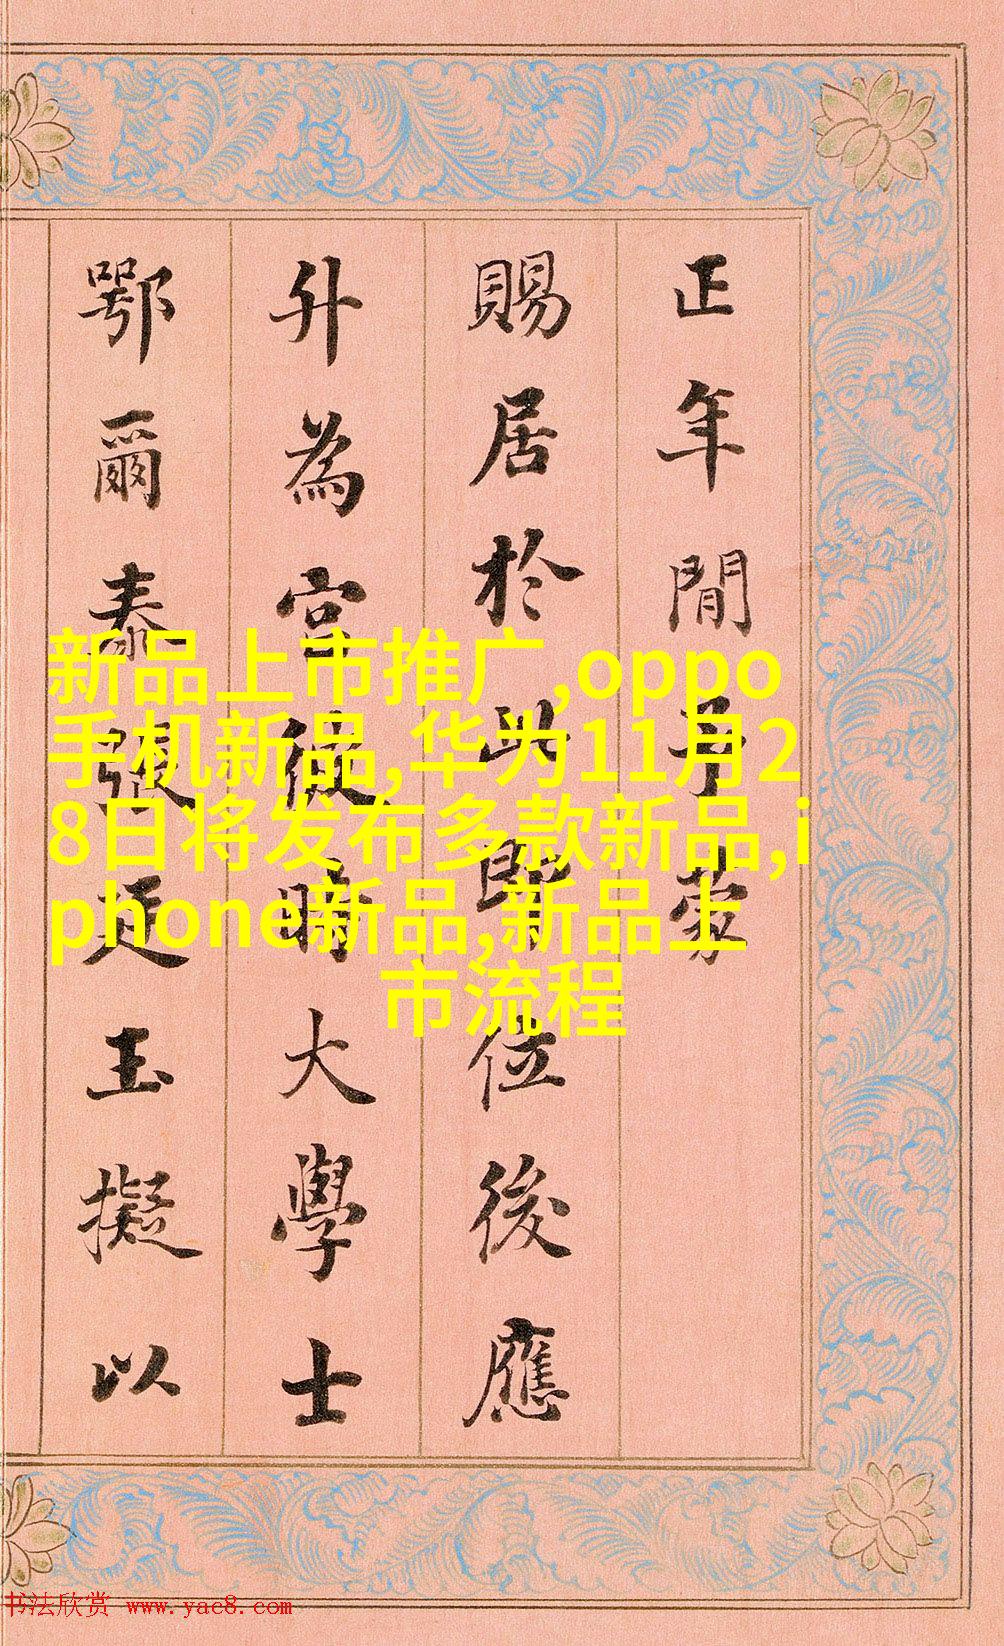 正年間予蒙
賜居於此即位後應
升為宮彼時大學士
鄂爾泰張廷玉擬以
新品上市推广,oppo
手机新品,华为11月2
8日将发布多款新品,i
phone新品,新品上
市流程
书法欣赏 www.yac8.com